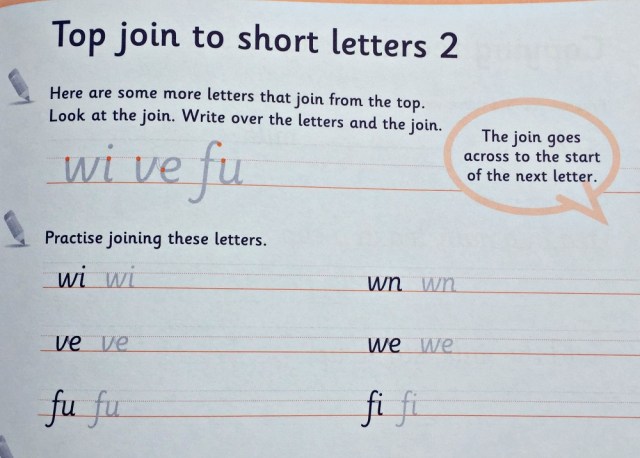 Top join to short letters 2
Here are some more letters that join from the top.
Look at the join. Write over the letters and the join.
The join goes
across to the start
of the next letter.
wi ve fu
Practise joining these letters.
wi wi wn wn
ve ve we we
fu fu fi fi